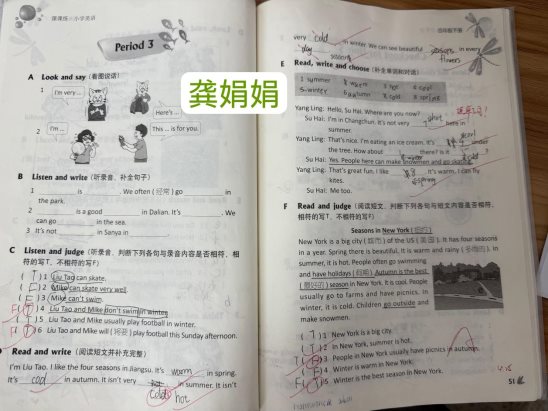 课课练 小学英语
Period 3
A Look and say (看图说话)
1 I'm very ...
Here's ...
2 I'm ...
This ... is for you.
B Listen and write (听录音，补全句子)
1 is . We often (经常) go in
the park.
2 is a good in Dalian. It's . We
can go in the sea.
3 It's not in Sanya in .
C Listen and judge (听录音，判断下列各句与录音内容是否相符，相
符的写T，不相符的写F)
( T ) 1 Liu Tao can skate.
2 Mike can skate very well.
3 Mike can't swim.
4 Liu Tao and Mike don't swim in winter.
5 Liu Tao and Mike usually play football in winter.
6 Liu Tao and Mike will play football this Sunday afternoon.
D Read and write (阅读短文并补充完整)
I'm Liu Tao. I like the four seasons in Jiangsu. It's warm in spring.
It's cool in autumn. It isn't very in summer. It isn't
cold hot
龚娟娟
四年级下册
very cold in winter. We can see beautiful seasons in every
play season flowers
E Read, write and choose (补全单词和对话)
1 summer 2 warm 3 hot 4 cool
5 winter 6 autumn 7 cold 8 spring
Yang Ling: Hello, Su Hai. Where are you now?
Su Hai: I'm in Changchun. It's not very here in
summer.
Yang Ling: That's nice. I'm eating an ice cream. It's under
the tree. How about there? Is it
Su Hai: Yes. People here can make snowmen and go skating.
Yang Ling: That's great fun. I like It's warm. I can fly
kites.
Su Hai: Me too.
F Read and judge (阅读短文，判断下列各句与短文内容是否相符，
相符的写T，不相符的写F)
Seasons in New York (纽约)
New York is a big city (城市) of the US (美国). It has four seasons
in a year. Spring there is beautiful. It is warm and rainy (多雨的). In
summer, it is hot. People often go swimming
and have holidays (假期). Autumn is the best
(最好的) season in New York. It is cool. People
usually go to farms and have picnics. In
winter, it is cold. Children go outside and
make snowmen.
( T ) 1 New York is a big city.
( T ) 2 In New York, summer is hot.
3 People in New York usually have picnics in autumn.
4 Winter is warm in New York.
5 Winter is the best season in New York.
51